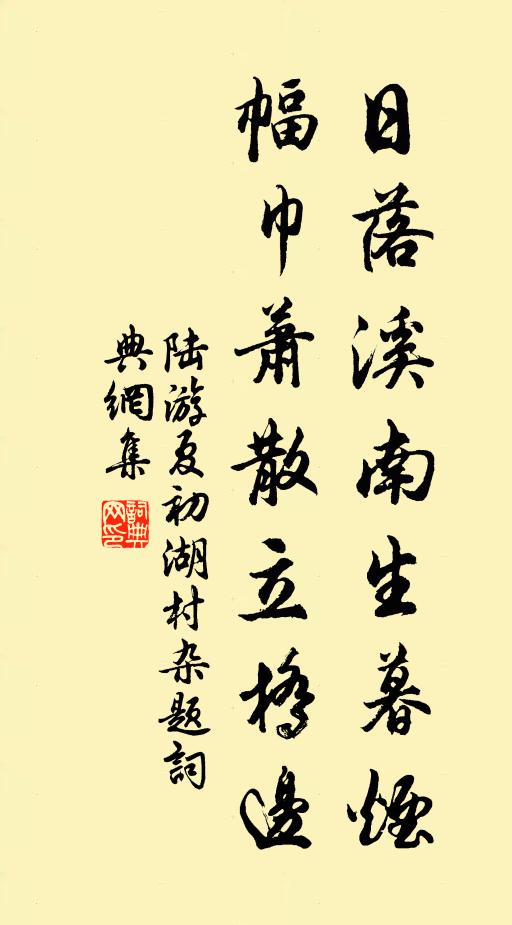 日落溪南生暮煙
幅巾蕭散立橋邊
陸游夏初湖村杂題詞
典網集
詞典
网印